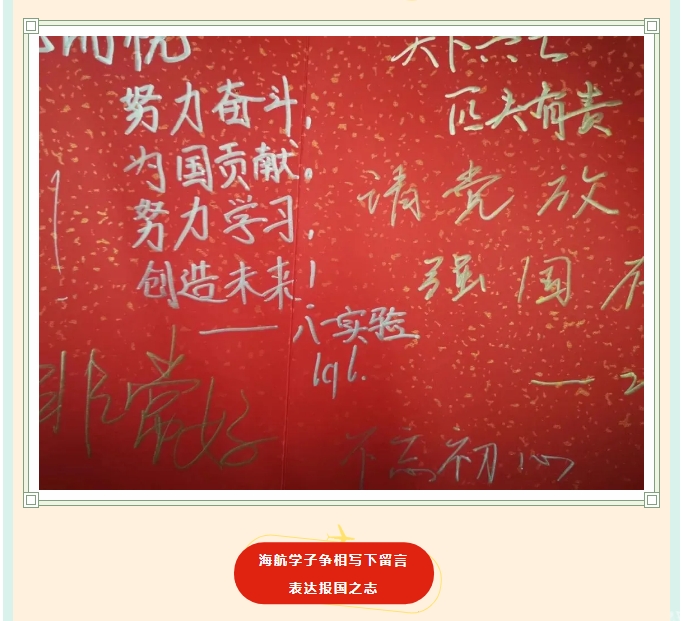 努力奋斗，
为国贡献。
努力学习，
创造未来！
——八实验
lql.
非常好
匹夫有责
请党放
强国有
不忘初心
海航学子争相写下留言
表达报国之志